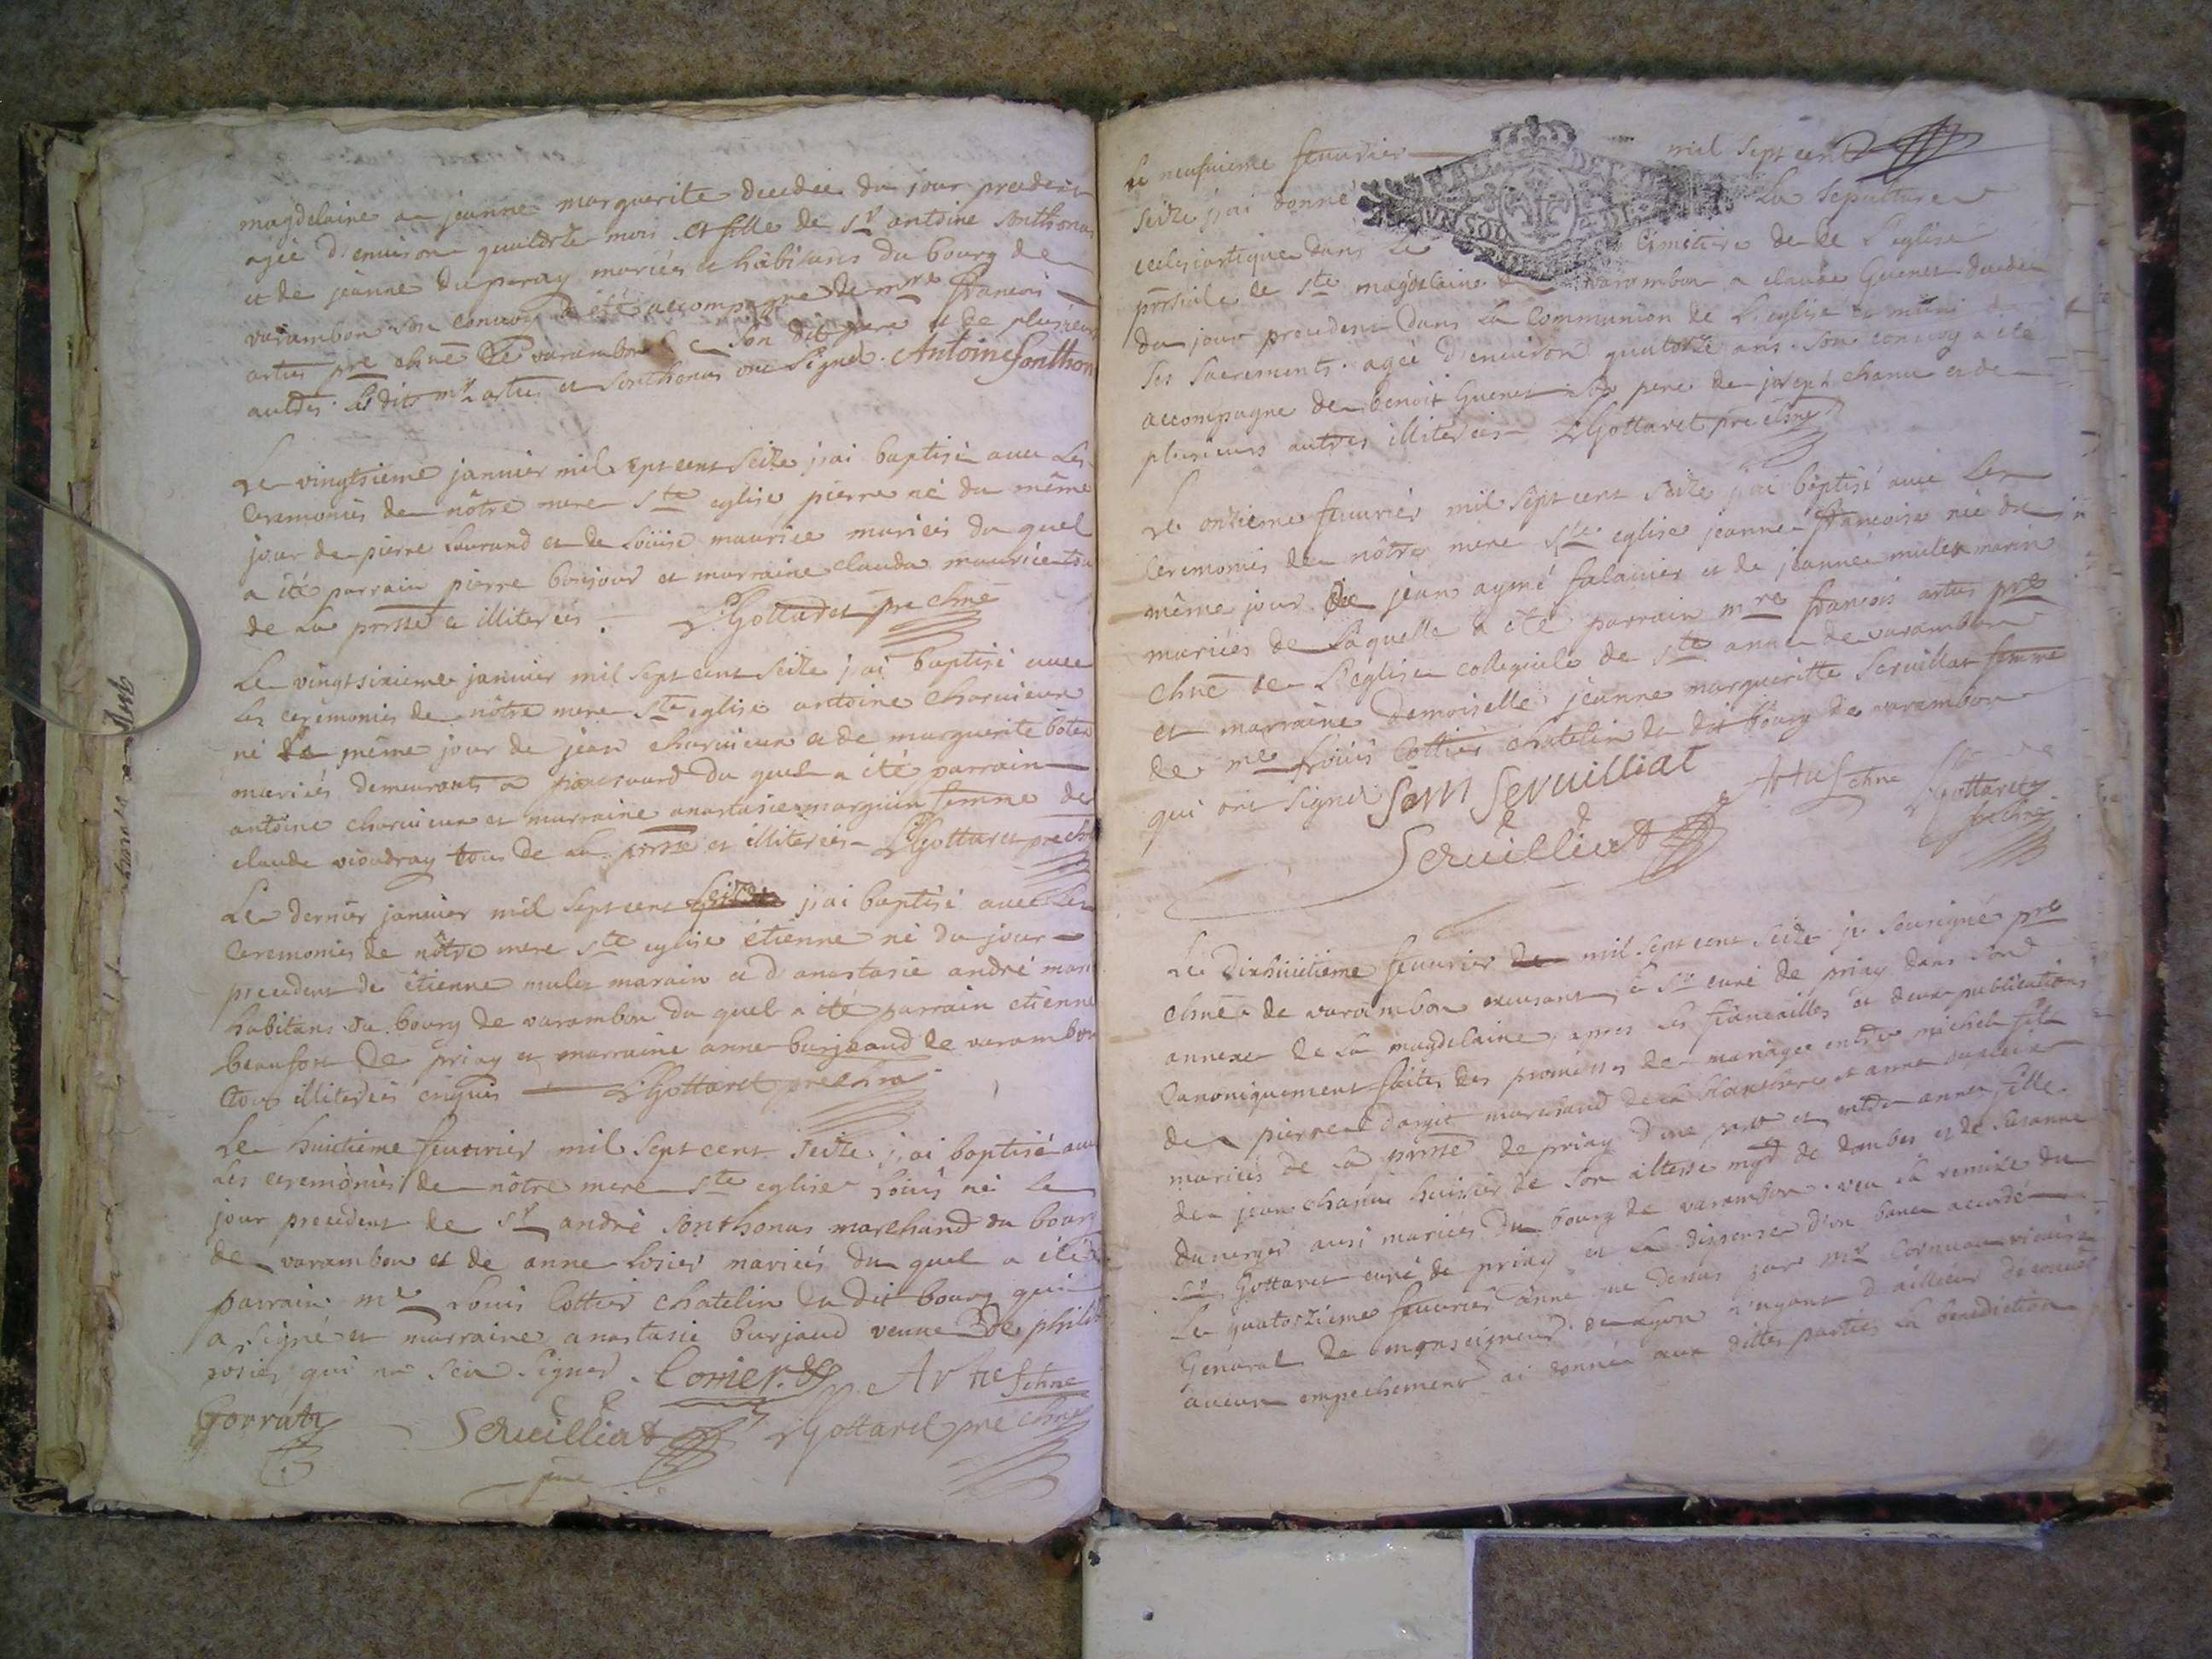 magdelaine a jeanne marguerite decedée du jour precedent
agée d'environ quattorze mois et fille de Sr antoine Sonthonas
et de jeanne duperay mariés et habitans du bourg de
varambon son convoy a été accompagné de mre francois
artus pre chne de varambon son dit pere et de plusieurs
autres les dits mr artus et Sonthonas ont Signé. Antoine Sonthon
Le vingtsieme janvier mil sept cent Seize j'ai baptisé avec Les
Ceremonies de nôtre mere Ste eglise pierre né du même
jour de pierre Laurand et de Loüise maurice mariés du quel
a été parrain pierre bonjour et marraine clauda maurice
de La prsse et illiterés. LGottaret pre chne
Le vingtsixieme janvier mil sept cent Seize j'ai baptisé avec
Les ceremonies de nôtre mere Ste eglise antoine Charvieux
né le même jour de jean charvieux et de marguerite
mariés demeurants a du quel a été parrain
antoine charvieux et marraine anastasie marguin femme de
claude vioudray tous de La prsse et illiterés LGottaret pre chne
Le dernier janvier mil Sept cent Seize j'ai baptisé avec Les
Ceremonies de nôtre mere Ste eglise etienne né du jour
precedent de etienne mulet marain et d'anastasie andré mari
habitans du bourg de varambon du quel a été parrain etienne
beaufort de priay et marraine anne burjeaud de varambon
tous illiterés enquis LGottaret pre chne
Le huitieme feuvrier mil sept cent Seize j'ai baptisé avec
Les ceremonies de nôtre mere Ste eglise Loüis né Le
jour precedent de Sr andré Sonthonas marchand du bourg
de varambon et de anne Losier mariés du quel a été
parrain me Louis Cottier chatelin du dit bourg qui
a signé et marraine anastasie burjaud veuve de
rosier qui na sceu signer. Artus chne
Gorrati Servilliat LGottaret pre chne
Le neufvieme feuvrier mil sept cent
Seize j'ai donné La Sepulture
ecclesiastique dans Le Cimitire de de L'eglise
prssiale de Ste magdelaine de varambon a claude Guenet decedé
du jour precedent dans La Communion de L'eglise et muni
des Sacrements. agée d'environ quatorze ans. Son convoy a été
accompagné de benoit Guenet son pere de joseph chanu et de
plusieurs autres illiterés LGottaret pre chne
Le onzieme feuvrier mil sept cent Seize j'ai baptisé avec Les
Ceremonies de nôtre mere Ste eglise jeanne francoise née du
même jour de jean aymé falavier et de jeanne mulet marin
mariés de Laquelle a été parrain mre francois artus pre
chne de L'eglise collegiale de Ste anne de varambon
et marraine Demoiselle jeanne margueritte Servillat femme
de me Loüis Cottier chatelin du dit bourg de varambon
qui ont signé Servilliat Artus chne LGottaret
Servilliat pre chne
Le Dixhuitieme feuvrier mil sept cent Seize je Sousigné pre
chne de varambon excusant Sr curé de priay dans son
annexe de La magdelaine, apres Les fiancailles et deux publications
Canoniquement faites des promesses de mariage entre michel fils
de pierre Dargit marchand de et anne
mariés de La prsse de priay d'une part et anne fille
de jean chanu huissier de Son altesse mgr de dombes et de Susanne
Duverger aussi mariés du bourg de varambon. veu La remise du
Sr Gottaret curé de priay et La dispense d'un banc accordé
Le quatorzieme feuvrier anné que dessus par mr Cornuau vicaire
General de monseigneur de Lyon n'ayant d'ailleur decouvert
aucun empechement ai donné aux dittes parties La benediction